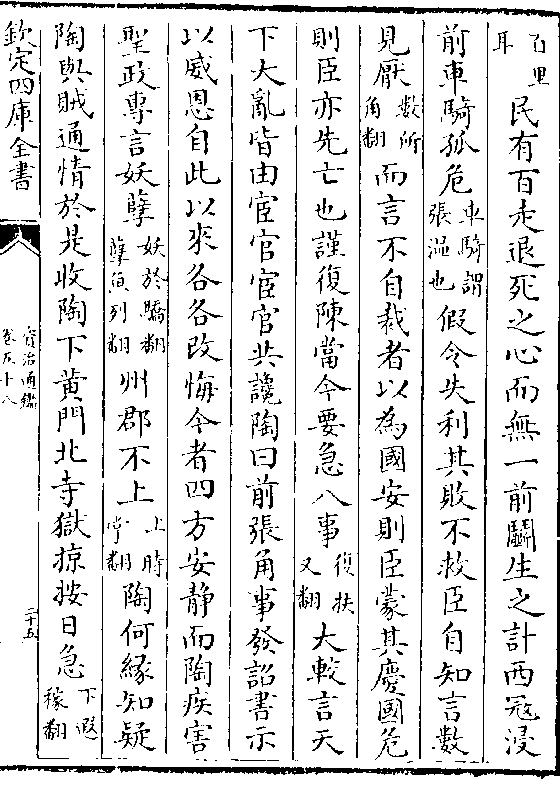 百里耳民有百走退死之心而無一前鬭生之計西冦浸
前車騎孤危車騎謂張温也假令失利其敗不救臣自知言數
見厭數所角翻而言不自裁者以為國安則臣蒙其慶國危
則臣亦先亡也謹復陳當今要急八事復扶又翻大較言天
下大亂皆由宦官宦官共讒陶曰前張角事發詔書示
以威恩自此以來各各改悔今者四方安静而陶疾害
聖政專言妖孽妖於驕翻孽魚列翻州郡不上上時掌翻陶何緣知疑
陶與賊通情於是收陶下黄門北寺獄掠按日急下遐稼翻
欽定四庫全書
資治通鑑
卷五十八
二十五